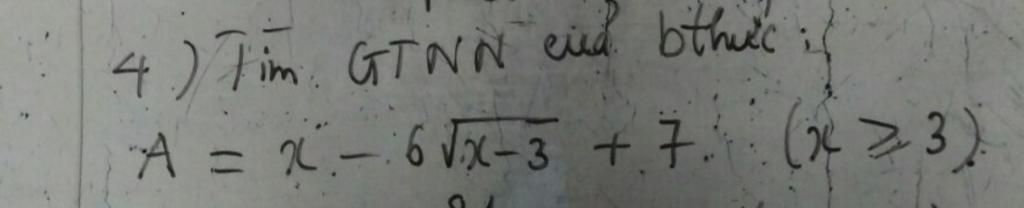 4) Tìm GTNN của bthức:
A = x - 6√(x-3) + 7 (x ≥ 3)